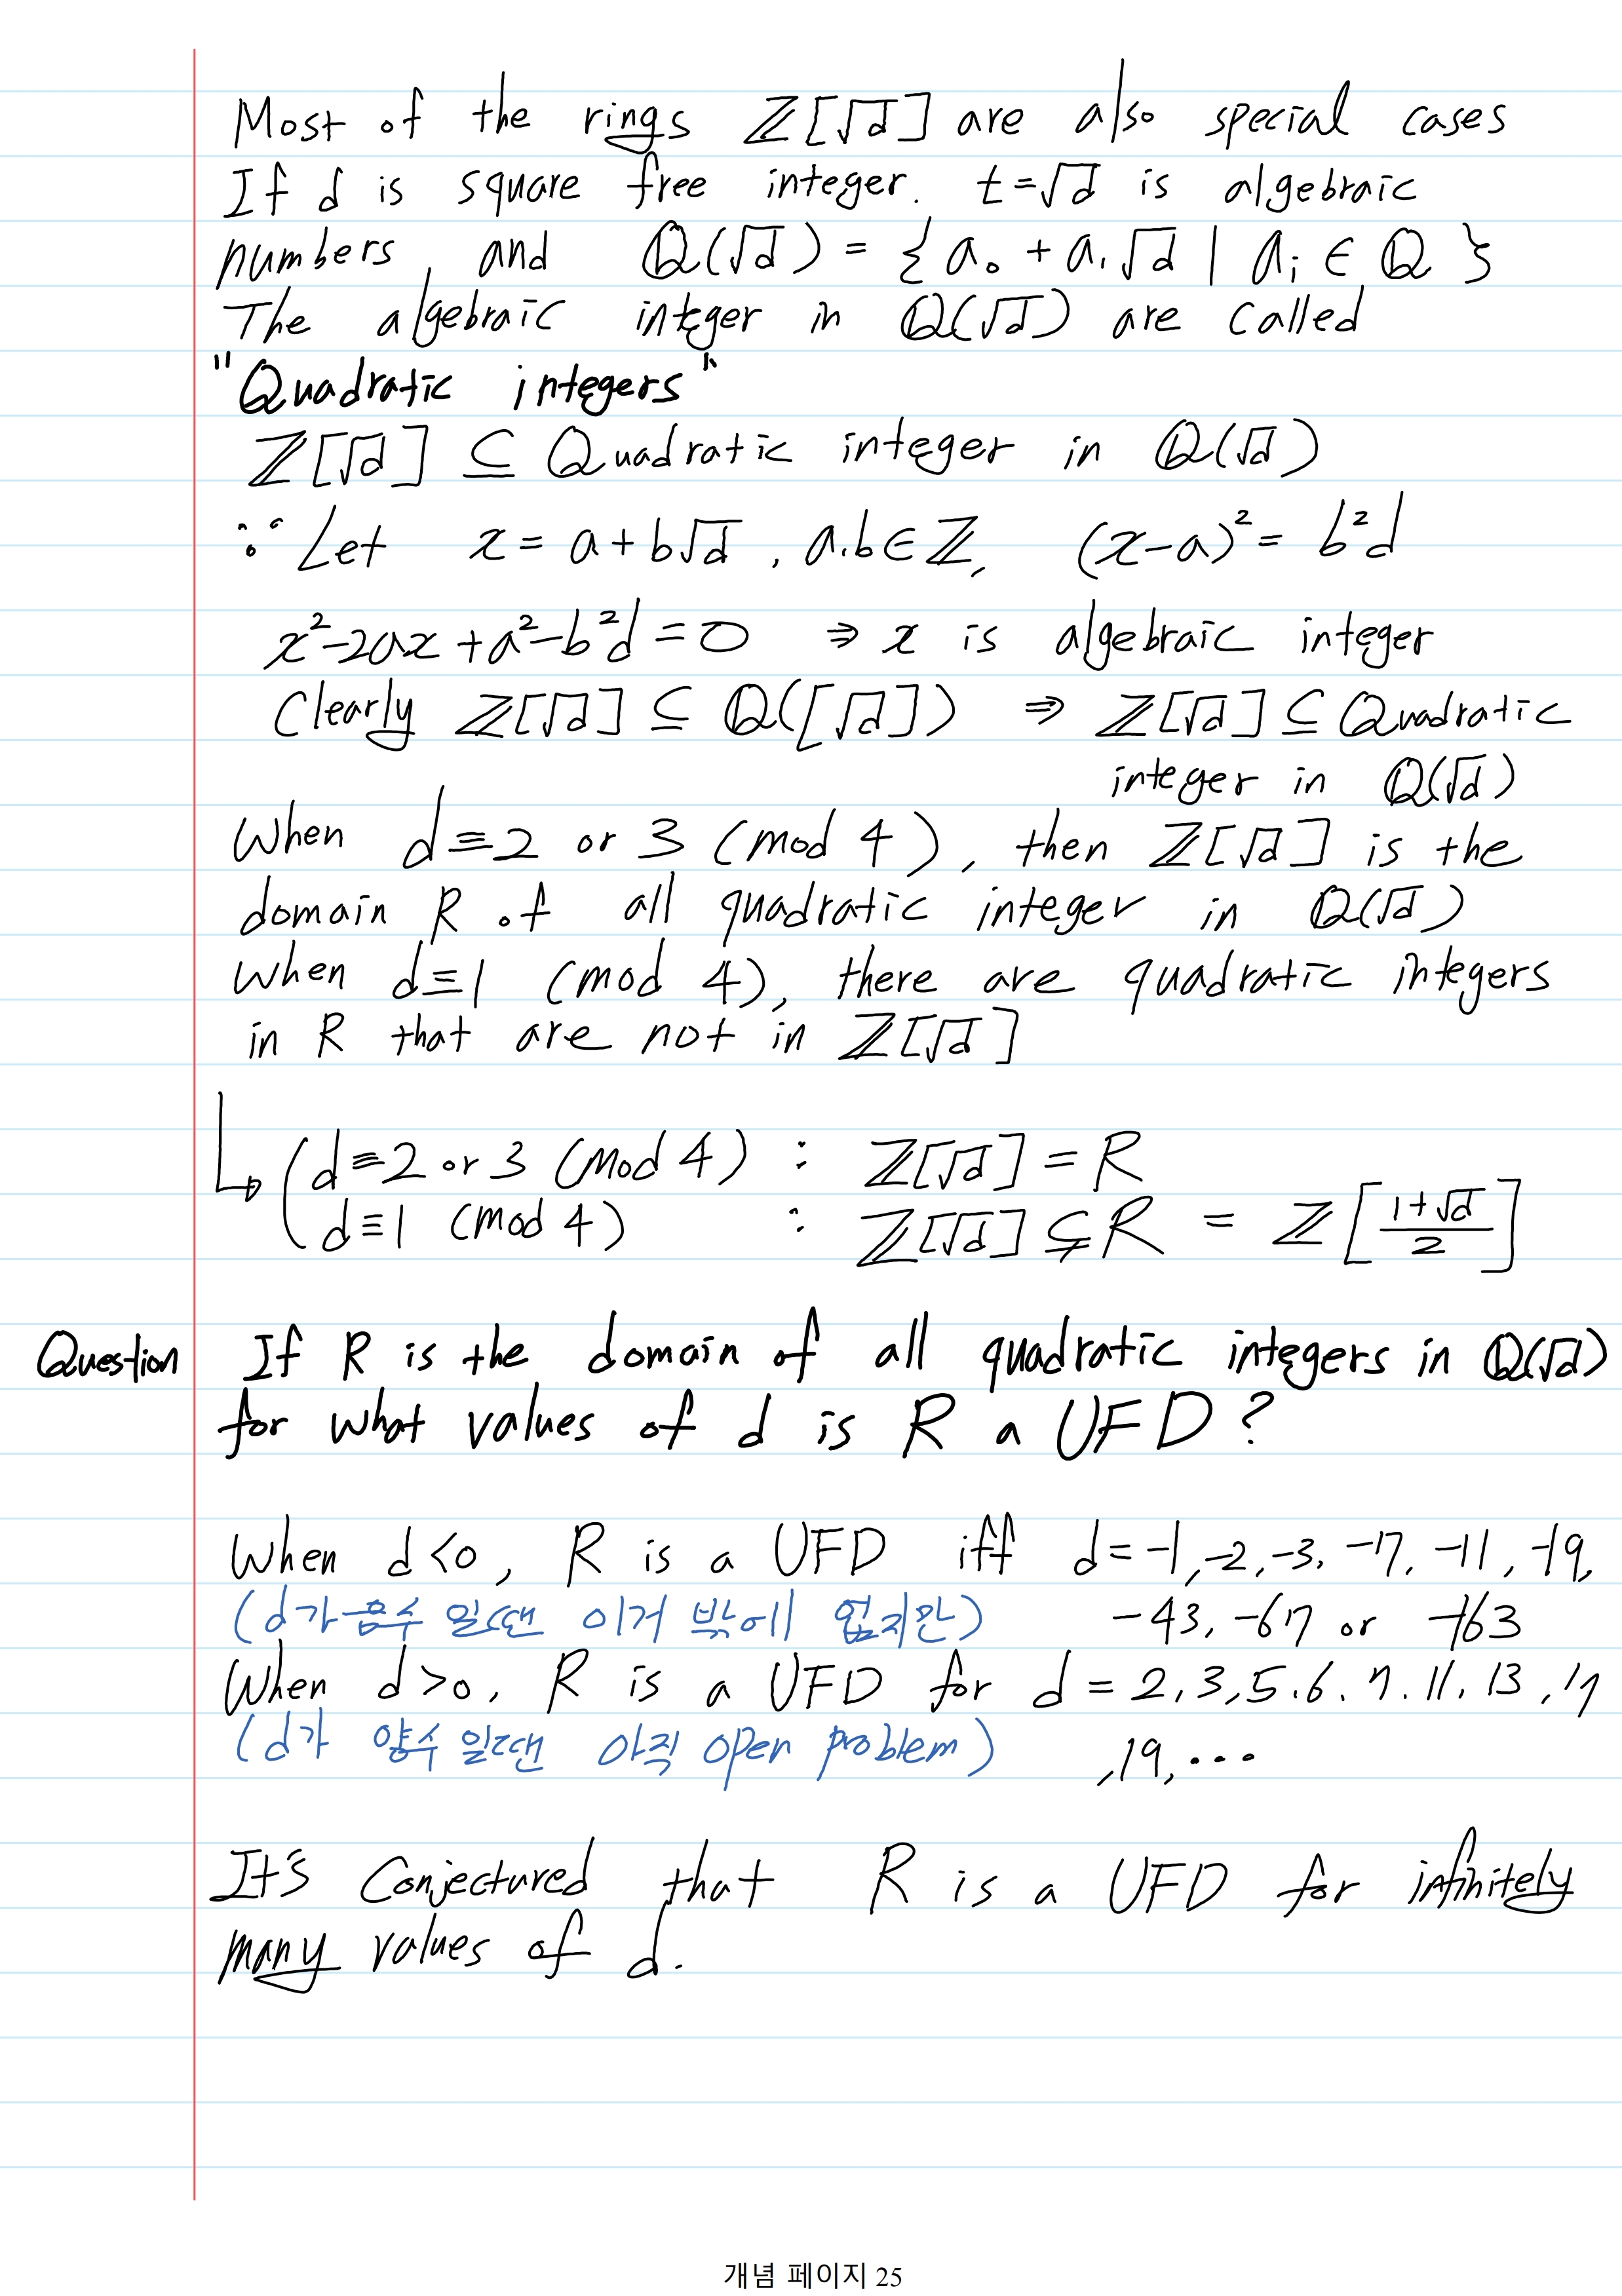 Most of the rings ℤ[√d] are also special cases
If d is square free integer. t=√d is algebraic
numbers, and ℚ(√d) = {a₀ + a₁√d | aᵢ ∈ ℚ}
The algebraic integer in ℚ(√d) are called
"Quadratic integers"
ℤ[√d] ⊆ Quadratic integer in ℚ(√d)
∵ Let x = a+b√d , a.b∈ℤ, (x-a)² = b²d
x²-2ax+a²-b²d=0 ⇒ x is algebraic integer
Clearly ℤ[√d] ⊆ ℚ([√d]) ⇒ ℤ[√d] ⊆ Quadratic
integer in ℚ(√d)
When d≡2 or 3 (mod 4), then ℤ[√d] is the
domain R of all quadratic integer in ℚ(√d)
When d≡1 (mod 4), there are quadratic integers
in R that are not in ℤ[√d]
↳ ( d≡2 or 3 (mod 4) : ℤ[√d] = R
d≡1 (mod 4) : ℤ[√d] ⊊ R = ℤ[(1+√d)/2]
Question If R is the domain of all quadratic integers in ℚ(√d)
for what values of d is R a UFD?
When d<0, R is a UFD iff d=-1,-2,-3,-7,-11,-19,
(d가 음수 일땐 이거 밖에 없지만) -43, -67 or -163
When d>0, R is a UFD for d = 2,3,5.6.7.11.13,17
(d가 양수 일땐 아직 open problem) ,19, ···
It's Conjectured that R is a UFD for infinitely
many values of d.
개념 페이지 25